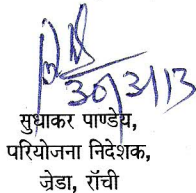 30/3/13
सुधाकर पाण्डेय,
परियोजना निदेशक,
ज्रेडा, राँची